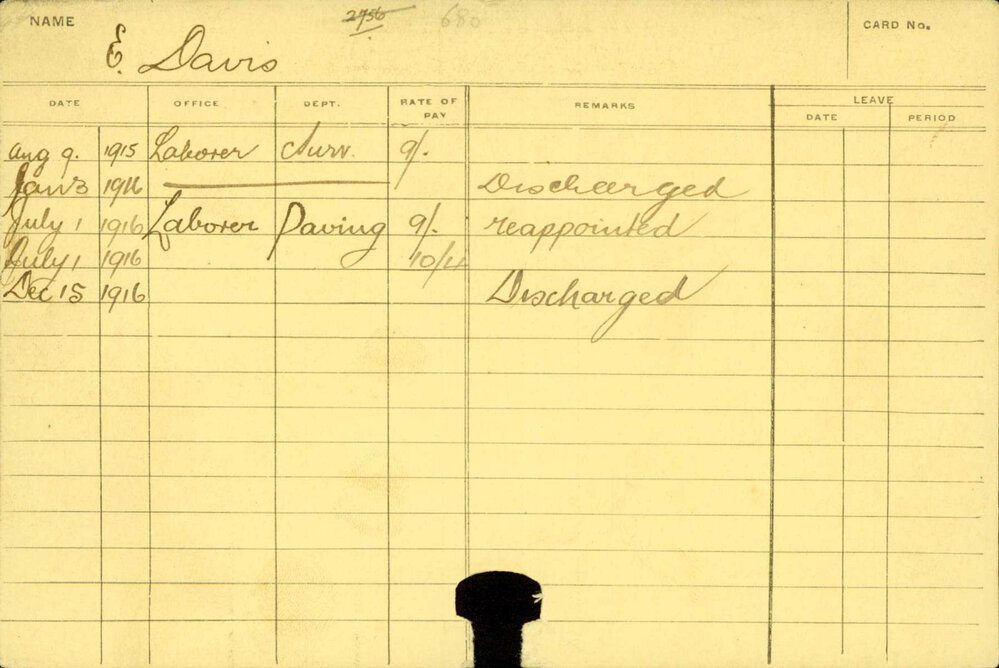 NAME 2756 680 CARD No.
E. Davis
DATE OFFICE DEPT. RATE OF PAY REMARKS LEAVE
DATE PERIOD
Aug 9. 1915 Laborer Surv. 9/-
Jan 3 1916 Discharged
July 1 1916 Laborer Paving 9/- reappointed
July 1 1916 10/4
Dec 15 1916 Discharged